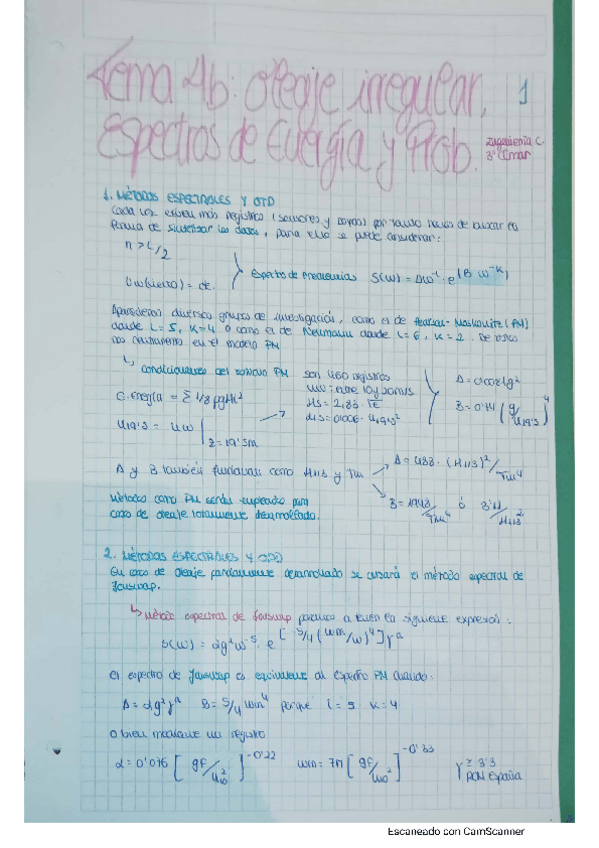 Tema 4b: Oleaje irregular,
Espectros de Energía y Prob.
1
Ingeniería C.
3º CCmar
1. MÉTODOS ESPECTRALES Y OTD
Cada vez existen más registros (sensores y boyas) por tanto hemos de buscar la
forma de sintetizar los datos, para ello se puede considerar:
n > L/2
Espectro de Frecuencias S(w) = Aw^-L · e^(B w^-K)
Aparecieron diversos grupos de investigación, como el de Pearson-Moskowitz (PM)
donde L=5, K=4 o como el de Neumann donde L=6, K=2. De estos
nos centramos en el modelo PM
Condiciones del modelo PM
son 460 registros
uw: entre 10 y 20 m/s
C. energía = Σ 1/8 ρgH²
U19'5 = uw | z=19'5m
A = 0'0081g²
B = 0'74 (g/U19'5)^4
A y B también funcionan como H1/3 y Tm
A = 488 · (H1/3)²/Tm^4
B = 1948/Tm^4 ó 3'11/H1/3²
Métodos como PM serán empleados para
casos de oleaje totalmente desarrollado.
2. MÉTODOS ESPECTRALES Y OPD
En casos de oleaje parcialmente desarrollado se usará el método espectral de
Jonswap.
Método espectral de Jonswap partimos a tener la siguiente expresión:
S(w) = αg²w^-5 · e^[-5/4 (wm/w)^4] γ^a
El espectro de Jonswap es equivalente al espectro PM cuando:
A = αg²γ^a B = 5/4 wm^4 porque L = 5 K = 4
O bien mediante un registro
α = 0'076 [gF/U10²]^-0'22 wm = 7π [gF/U10²]^-0'33 γ ≃ 3'3
para España
Escaneado con CamScanner